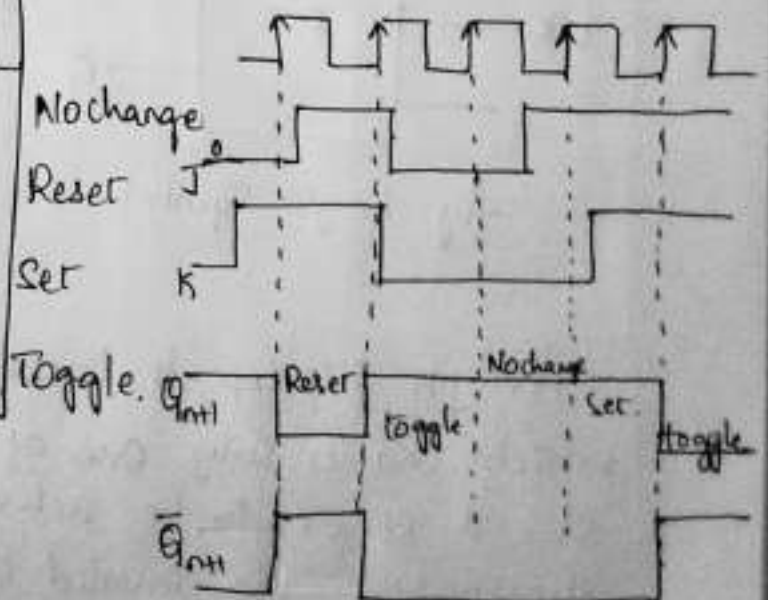 No change
0
J
Reset
Set
K
Toggle.
Qn+1
Reset
toggle
No change
Set.
toggle
Q̅n+1